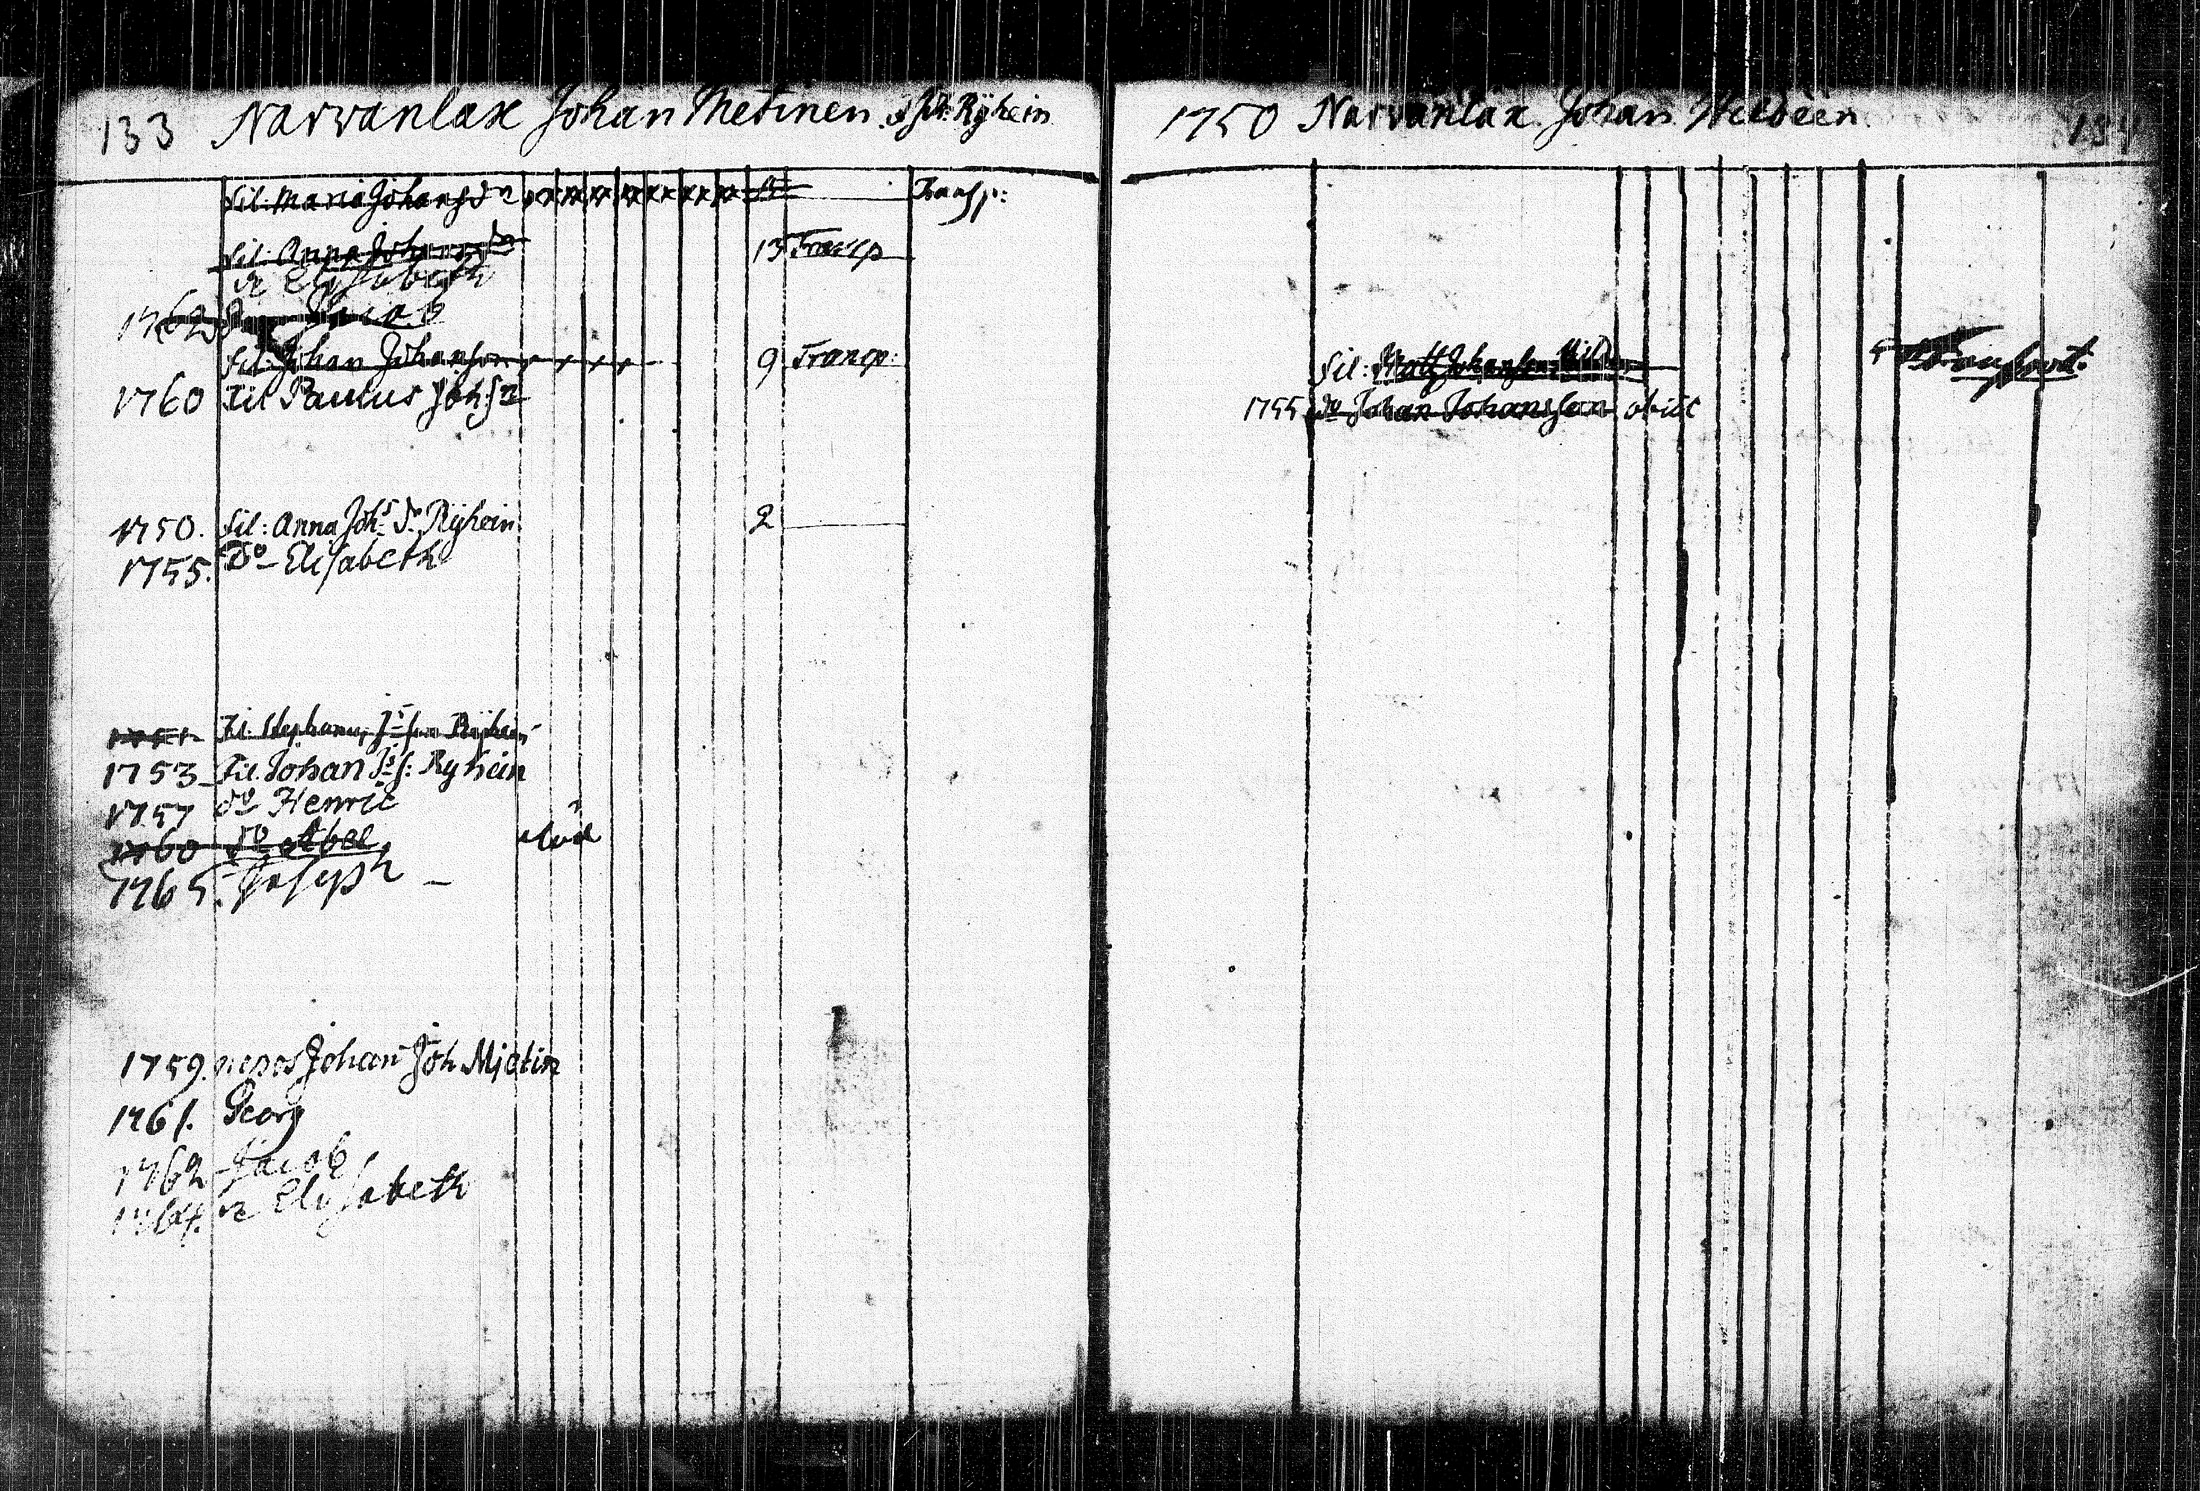 133 Narvanlax Johan Metinen. Ryhein
Fil: Maria Johansdr Transp:
Fil: Anna 13 Transp
Elisabeth
1762 Jacob
Fil: Johan Johansson 9 Transp:
1760 Fil Paulus Joh:
1750. Fil: Anna Joh: Dr Ryhein 2
1755. Do Elisabeth
Fil: Stephanus Ryhein
1753 Fil. Johan Ryhein
1757 do Henric
1760 do Abel död
1765. Joseph
1759. nepos Johan Joh Mjetin
1761. Georg
1762 Jacob
1764. Elisabeth
1750 Narvanlax. Johan 134
Fil: Matts Johansson Transport:
1755 do Johan Johansson obiit